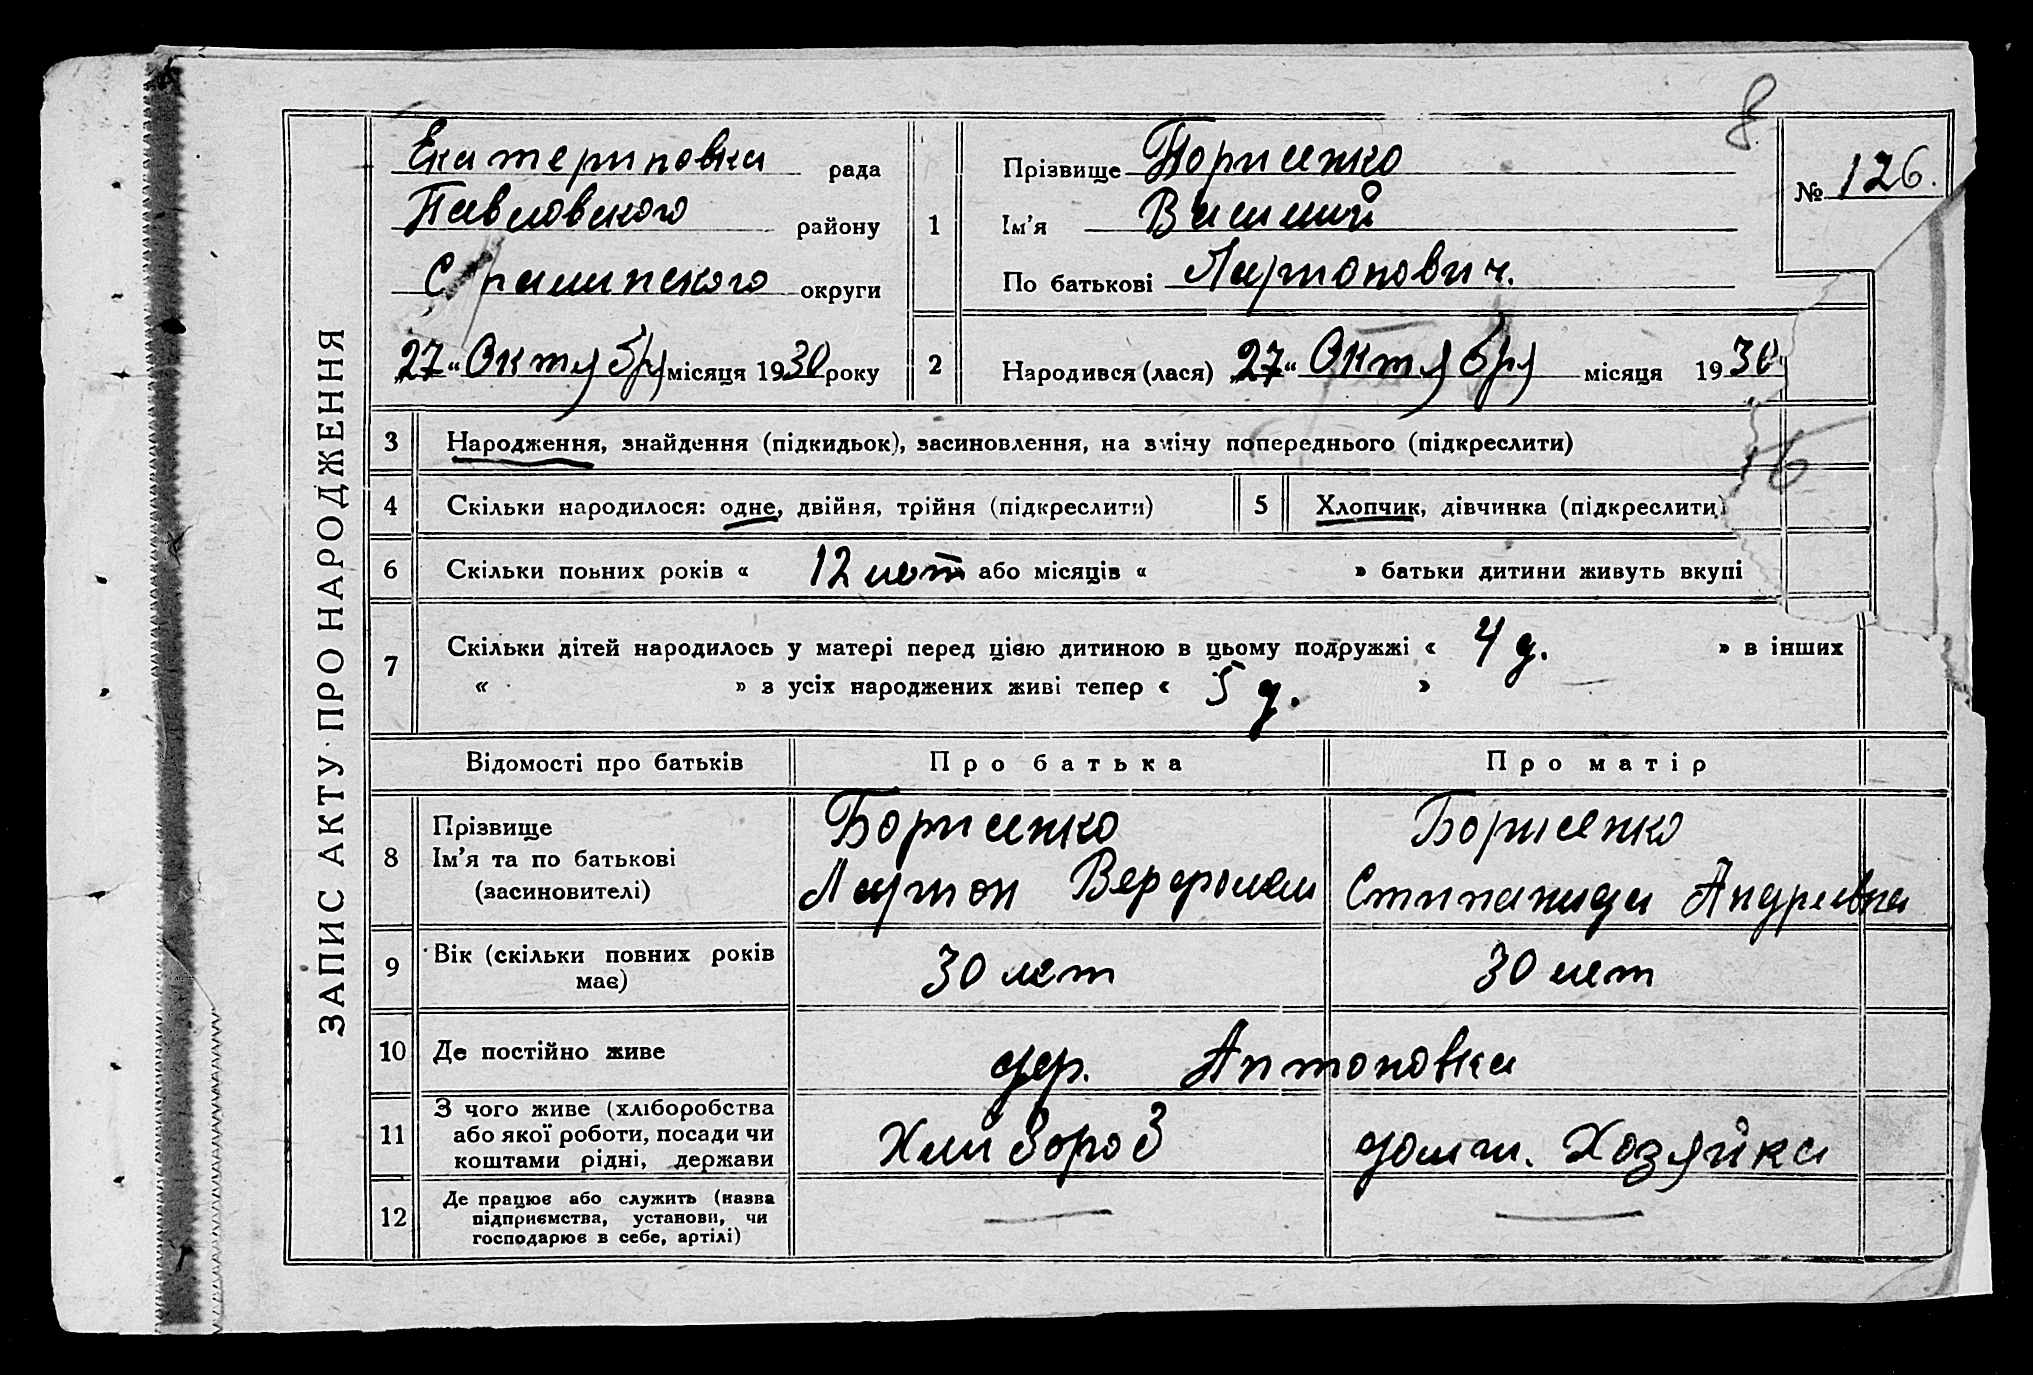 8
ЗАПИС АКТУ ПРО НАРОДЖЕННЯ
Екатериновка рада
Павловского району
Сталинского округи
„27“ Октября місяця 1930 року
1
Прізвище Борисенко
Ім’я Василий
По батькові Ларионович.
№ 126.
2 Народився (лася) „27“ Октября місяця 1930
3 Народження, знайдення (підкидьок), засиновлення, на зміну попереднього (підкреслити)
4 Скільки народилося: одне, двійня, трійня (підкреслити) 5 Хлопчик, дівчинка (підкреслити)
6 Скільки повних років « 12 лет » або місяців « » батьки дитини живуть вкупі
7 Скільки дітей народилось у матері перед цією дитиною в цьому подружжі « 4 д. » в інших
« » з усіх народжених живі тепер « 5 д. »
Відомості про батьків Про батька Про матір
8 Прізвище
Ім’я та по батькові
(засиновителі)
Борисенко
Ларион
Борисенко
Степанида Андреевна
9 Вік (скільки повних років
має)
30 лет 30 лет
10 Де постійно живе дер. Антоновка
11 З чого живе (хліборобства
або якої роботи, посади чи
коштами рідні, держави
Хлибороб домаш. Хозяйка
12 Де працює або служить (назва
підприємства, установи, чи
господарює в себе, артілі)
— —